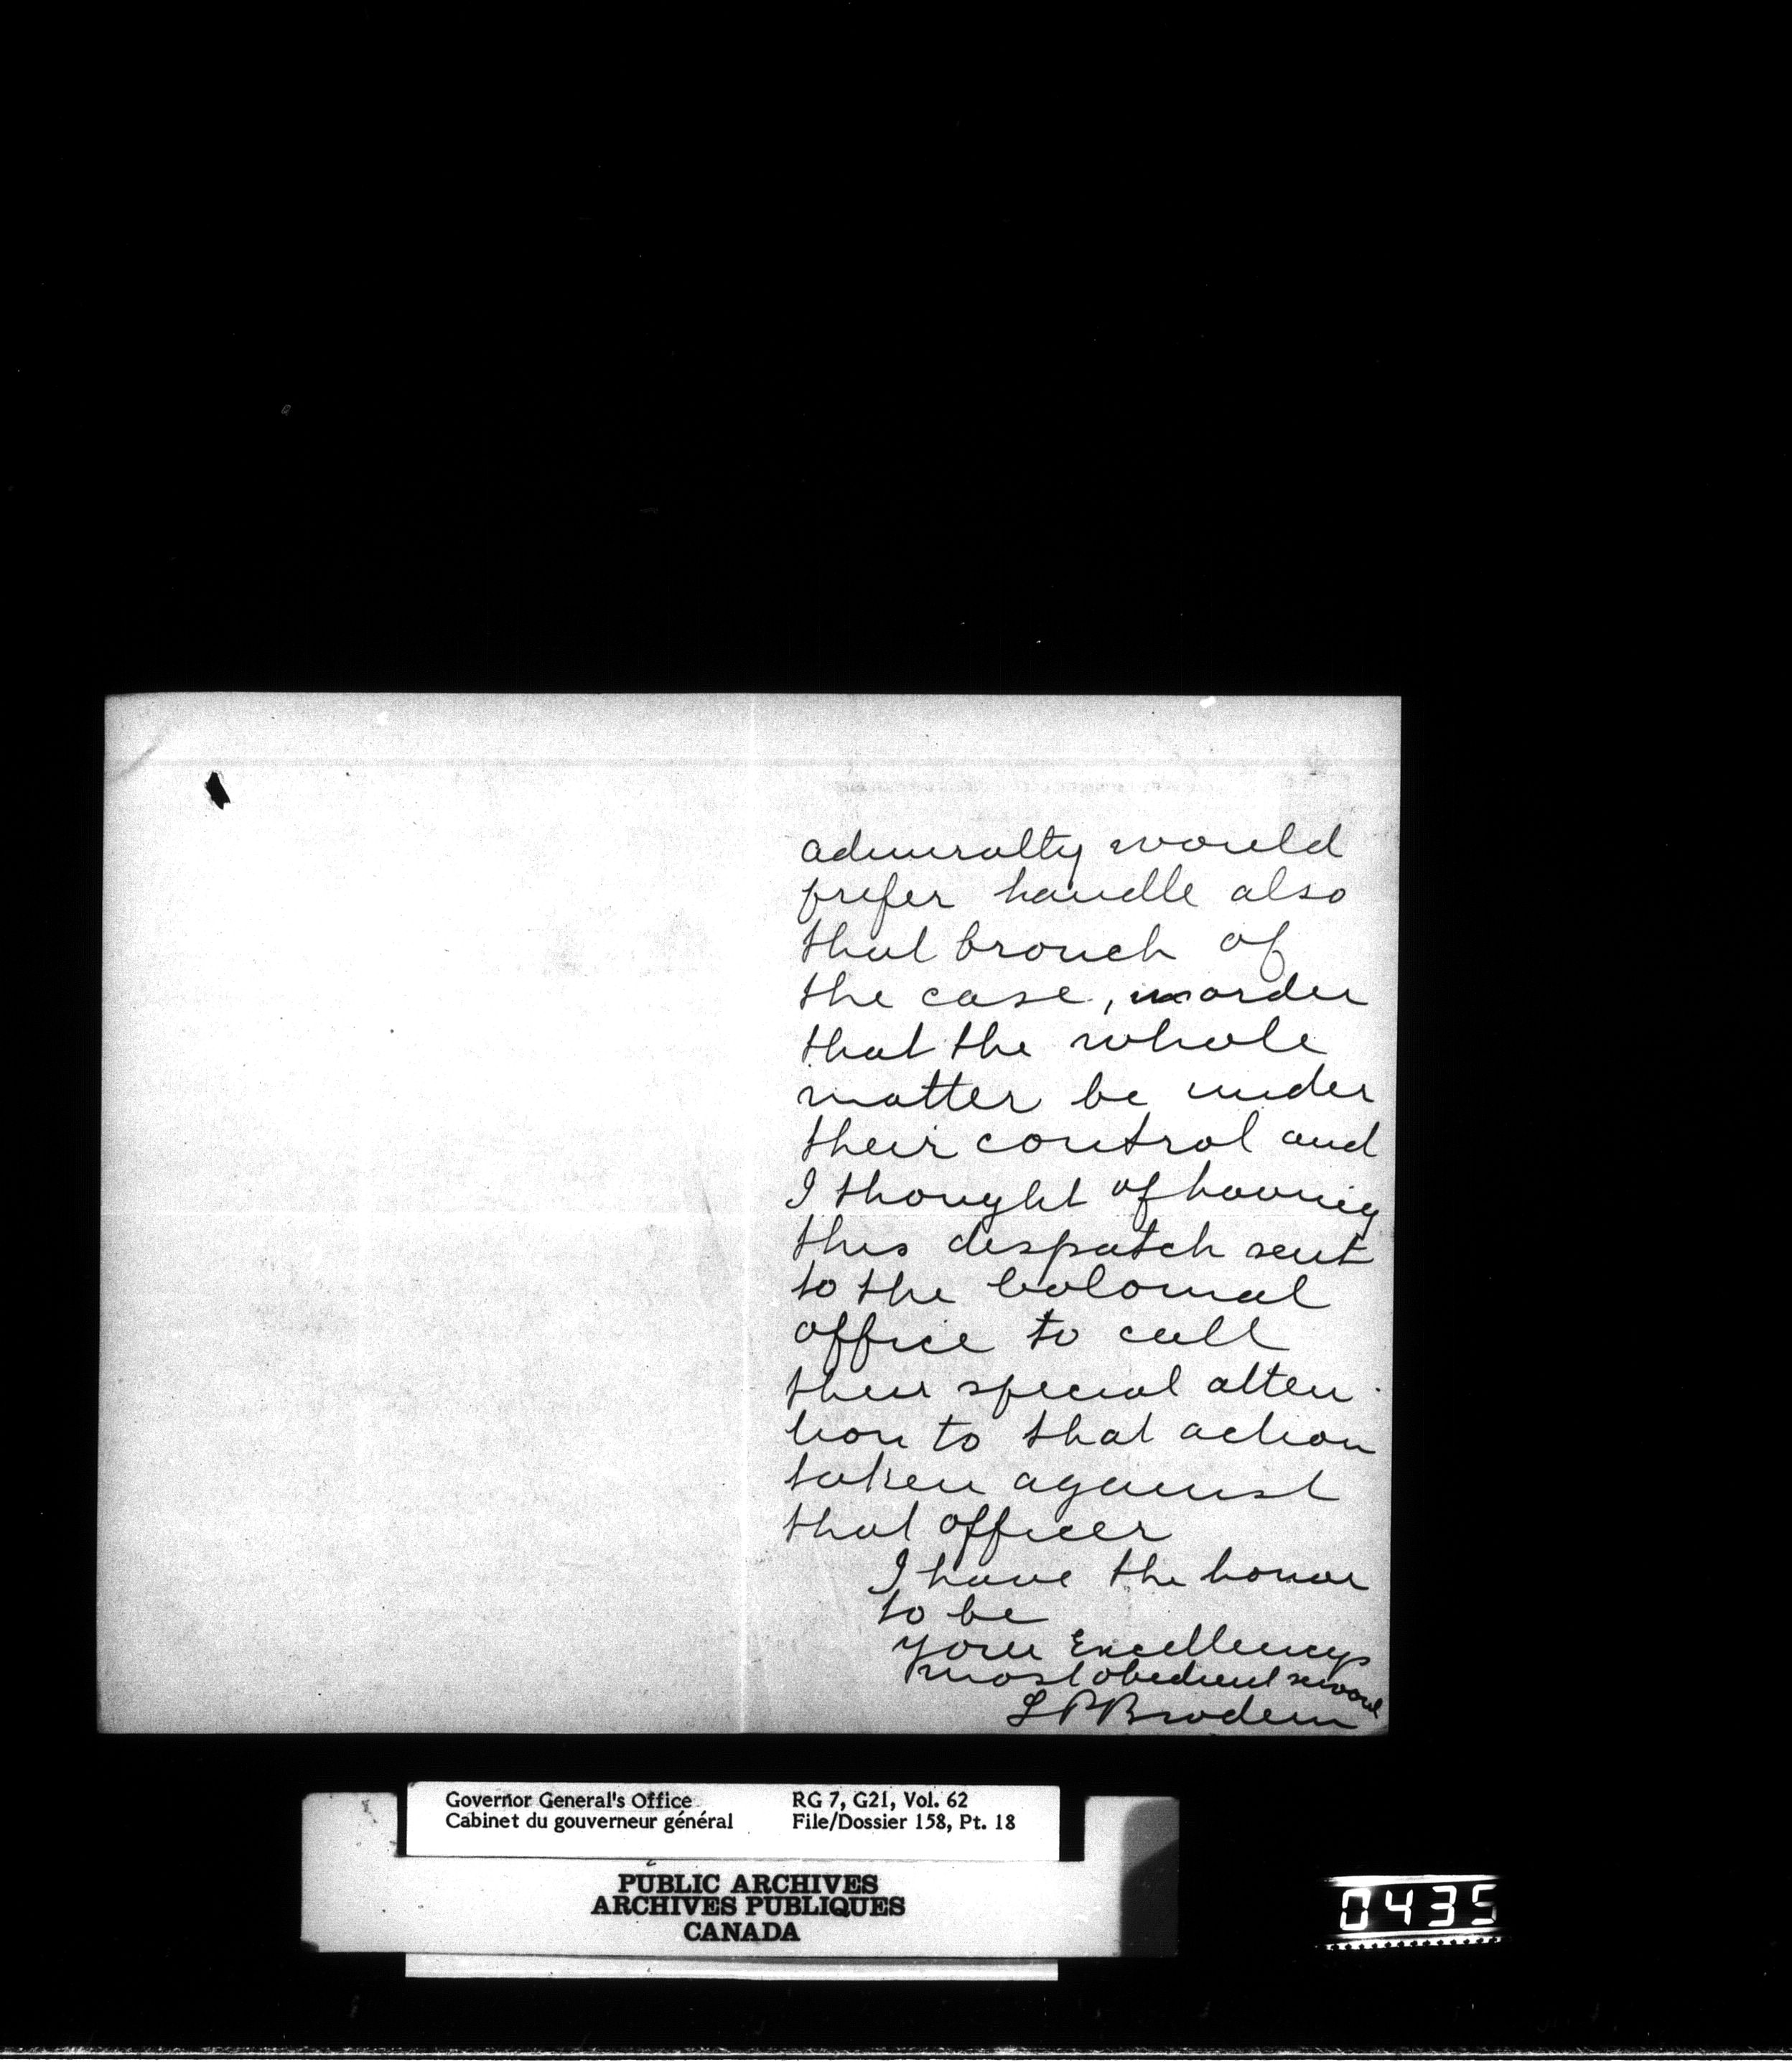 admiralty would
prefer handle also
that branch of
the case, in order
that the whole
matter be under
their control and
I thought of having
this despatch sent
to the Colonial
office to call
their special atten
tion to that action
taken against
that officer
I have the honor
to be
your Excellencys
most obedient servant
L P Brodeur
Governor General's Office
Cabinet du gouverneur général
RG 7, G21, Vol. 62
File/Dossier 158, Pt. 18
PUBLIC ARCHIVES
ARCHIVES PUBLIQUES
CANADA
0435